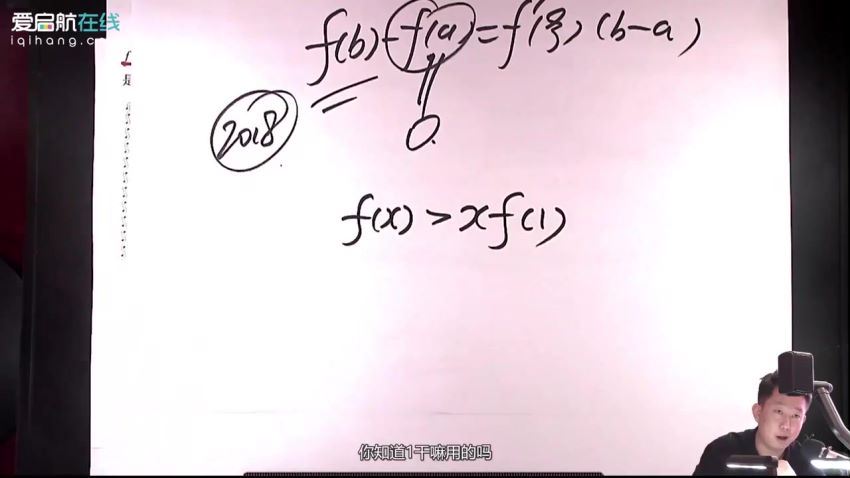 爱启航在线
iqihang.com
f(b)-f(a)=f'(ξ)(b-a)
0
2018
f(x)>xf(1)
你知道1干嘛用的吗